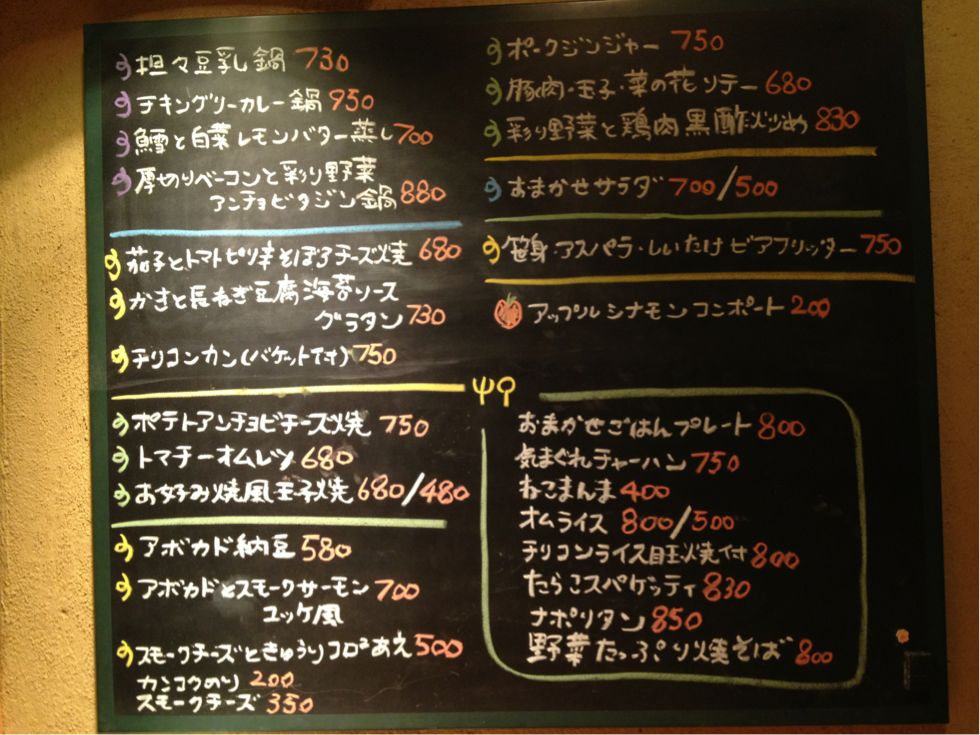 担々豆乳鍋 730
チキングリーカレー鍋 950
鱈と白菜レモンバター蒸し 700
厚切りベーコンと彩り野菜
アンチョビタジン鍋 880
茄子とトマトピリ辛そぼろチーズ焼 680
かきと長ねぎ豆腐海苔ソース
グラタン 730
チリコンカン(バケット付) 750
ポテトアンチョビチーズ焼 750
トマチーオムレツ 680
お好み焼風玉子焼 680/480
アボカド納豆 580
アボカドとスモークサーモン 700
ユッケ風
スモークチーズときゅうりコロコロあえ 500
カンコクのり 200
スモークチーズ 350
ポークジンジャー 750
豚肉・玉子・菜の花ソテー 680
彩り野菜と鶏肉黒酢炒め 830
おまかせサラダ 700/500
笹身・アスパラ・しいたけ ビアフリッター 750
アップルシナモンコンポート 200
おまかせごはんプレート 800
気まぐれチャーハン 750
ねこまんま 400
オムライス 800/500
チリコンライス目玉焼付 800
たらこスパゲッティ 830
ナポリタン 850
野菜たっぷり焼そば 800